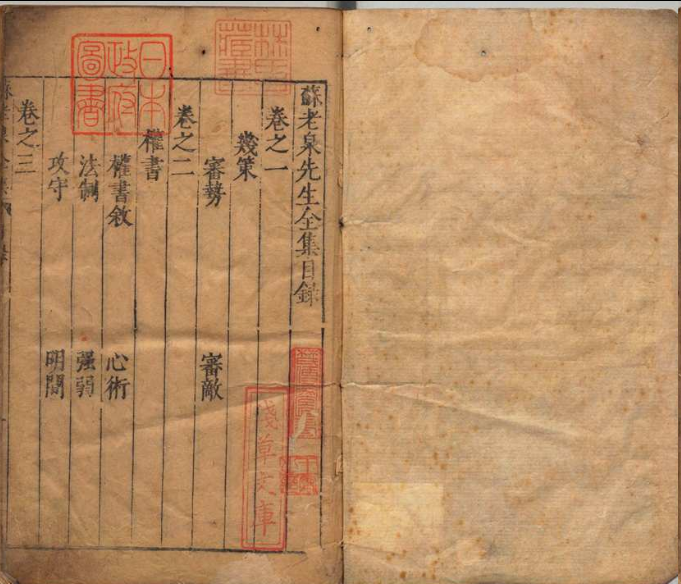 蘇老泉先生全集目錄
卷之一
幾策
審勢 審敵
卷之二
權書
權書敘 心術
法制 强弱
攻守 明間
卷之三
日本
政府
圖書
林氏
藏書
淺草文庫